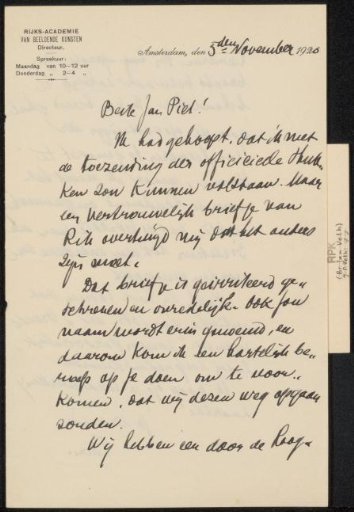 RIJKS-ACADEMIE
VAN BEELDENDE KUNSTEN
Directeur.
Spreekuur:
Maandag van 10–12 uur
Donderdag „ 2–4 „
Amsterdam, den 5den November 1920
Beste Jan Piet!
Ik had gehoopt, dat ik met
de toezending der officieele stuk-
ken zou kunnen volstaan. Maar
een vertrouwelijk briefje van
Rik overtuigd mij dat het anders
zijn moet.
Dat briefje is geirriteerd ge-
schreven en onredelijk. Ook jou
naam wordt erin genoemd, en
daarom kom ik een hartelijk be-
roep op je doen om te voor-
komen, dat wij dezen weg opgaan
zouden.
Wij hebben een door de Hoog-
RPK